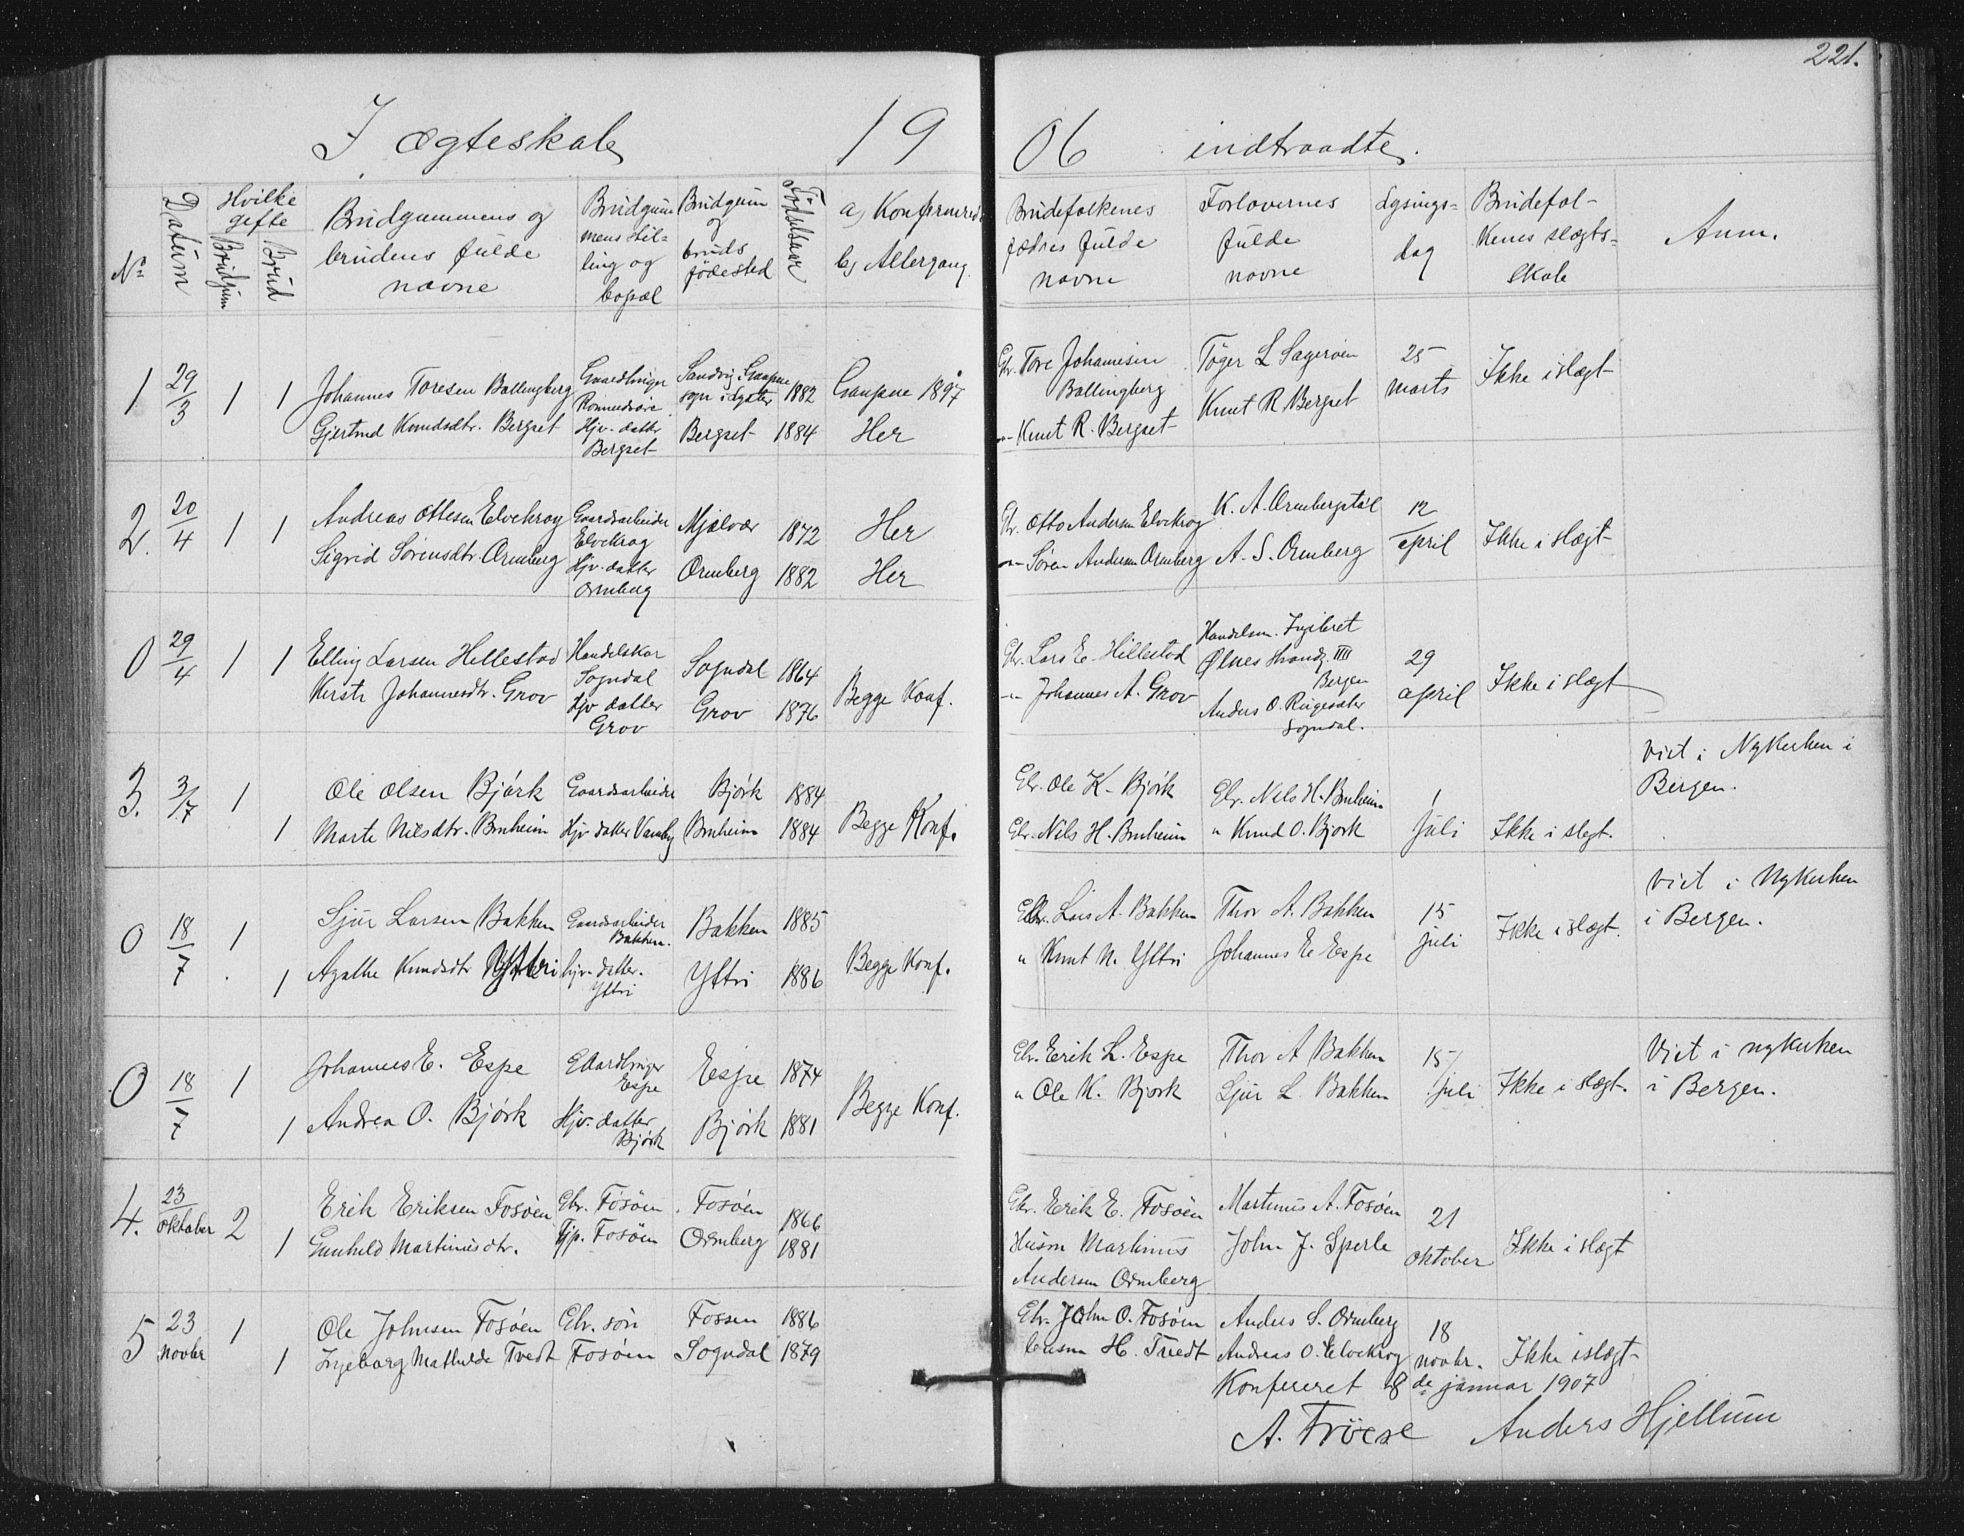 221.
I ægteskab 19 06 indtraadte.
No
Datum
Hvilke gifte
Brudgum
Brud
Brudgummens og
brudens fulde
navne
Brudgum
mens stil=
ling og
bopæl
Brudgum
og
bruds
fødested
Fødselsaar
a) Konfirmered
b) Altergang
Brudefolkenes
fædres fulde
navne
Forlovernes
fulde
navne
Lysnings-
dag
Brudefol-
kenes slægts-
skab
Anm.
1 29/3 1 1
Johannes Toresen Ballingberg
Gjertrud Knudsdtr. Bergset
Gaardbruger
Hjv. datter
Bergset
Sandvig, Gaupne
sogn i Lyster 1882
Bergset 1884
Gaupne 1897
Her
Gbr. Tore Johannesen
Ballingberg
"- Knut R. Bergset
Tøger L
Knut R Bergset
25
marts
Ikke i slægt
2. 20/4 1 1
Andreas Ottesen Elvekrog
Sigrid Sørensdtr. Ormberg
Gaardsarbeider
Elvekrog
Hjv. datter
Ormberg
Mjølvær 1872
Ormberg 1882
Her
Her
Gbr. Otto Andersen Elvekrog
"- Søren Andersen Ormberg
K. A. Ormbergstøl
A. S. Ormberg
12
april
Ikke i slægt
0 29/4 1 1
Elling Larsen Hillestad
Kersti Johannesdtr. Grov
Handelskar
Sogndal
Hjv datter
Grov
Sogndal 1864
Grov 1876
Begge Konf.
Gbr. Lars E. Hillestad
-"- Johannes A. Grov
Handelsm. Ingebret
Ølnes Strandg. IIII
Bergen
Anders O. Ringesæter
Sogndal.
29
april
Ikke i slægt
3. 3/7 1 1
Ole Olsen Bjørk
Marte Nilsdtr. Bruheim
Gaardsarbeider
Hjv. datter
Bjørk 1884
Bruheim 1884
Begge Konf.
Gbr. Ole K. Bjørk
Gbr. Nils H. Bruheim
Gbr. Nils H. Bruheim
" Knud O. Bjørk
1
Juli
Ikke i slegt.
Viet i Nykirken i
Bergen.
0 18/7 1 1
Sjur Larsen Bakken
Agathe Knudsdtr Yttri
Gaardsarbeider
Bakken.
hjv. datter.
Yttri
Bakken 1885
Yttri 1886
Begge Konf.
Gbr. Lars A. Bakken
" Knut N. Yttri
Thor A. Bakken
Johannes E. Espe
15
juli
Ikke i slægt.
Viet i Nykirken
i Bergen.
0 18/7 1 1
Johannes E. Espe
Andrea O. Bjørk
Gaardbruger
Espe
Hjv. datter
Bjørk
Espe 1874
Bjørk 1881
Begge Konf.
Gbr. Erik L. Espe
" Ole K. Bjørk
Thor A Bakken
Sjur L. Bakken
15
juli
Ikke i slægt.
Viet i nykirken
i Bergen.
4. 23 oktober 2 1
Erik Eriksen Fosøen
Gunhild Martinusdtr.
Gbr. Fosøen
Tjp. Fosøen
Fosøen 1866
Ormberg 1881
Gbr. Erik E. Fosøen
Husm Martinus
Andersen Ormberg
Martinus A. Fosøen
John J. Sperle
21
oktober
Ikke i slægt
5 23 Novbr 1 1
Ole Johnsen Fosøen
Ingeborg Mathilde Tvedt
Gbr. søn
Fosøen
Fossen 1886
Sogndal 1879
Gbr. John O. Fosøen
H. Tvedt
Anders S. Ormberg
Andreas O. Elvekrog
18
novbr.
Ikke i slægt
Konfereret 8de januar 1907
A. Trøese Anders Hjellum